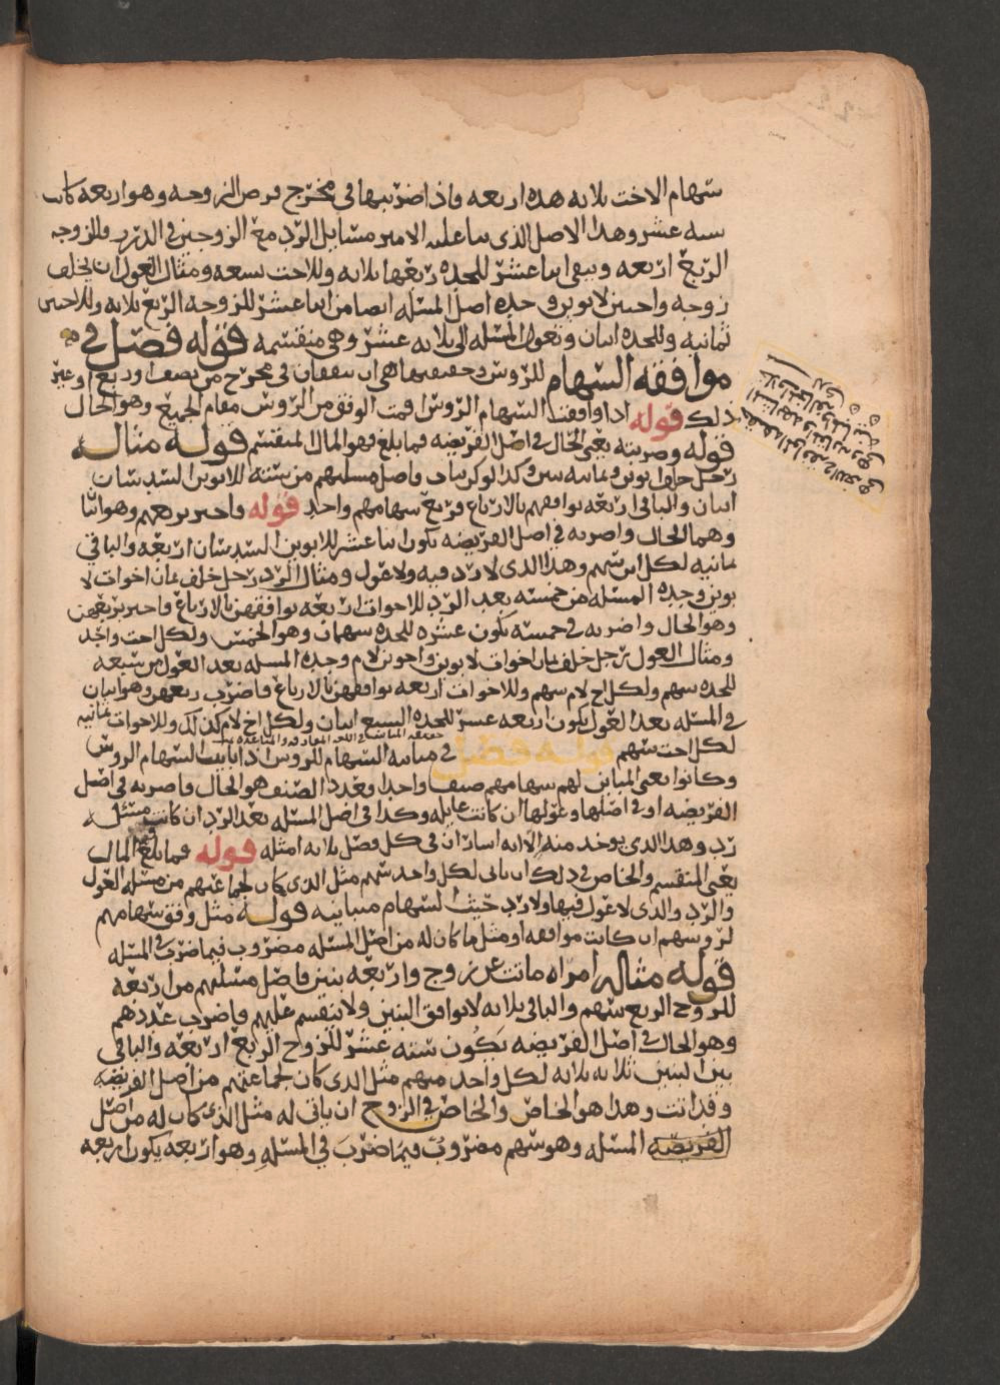 سهام الاخت ثلاثه هذه اربعه واذا ضربتها في مخرج فرض الزوجه وهو اربعه كانت
سته عشر وهذا الاصل الذي بنا عليه الامير مسايل الرد مع الزوجين في الدرر وللزوجه
الربع اربعه ويبقى اثنا عشر للجده ربعها ثلاثه وللاخت تسعه ومثال العول ان يخلف
زوجه واختين لابوين وجده اصل المسله ايضا من اثنا عشر للزوجه الربع ثلاثه وللاختين
ثمانيه وللجده اثنان وتعول المسله الى ثلاثه عشر وهي منقسمه قوله فصل في
موافقه السهام للروس وحقيقتها هي ان يتفقان في مخرج من نصف او ربع او غير
ذلك قوله اذا وافقت السهام الروس اقمت الوفق من الروس مقام الجميع وهو الحال
قوله وضربته يعني الحال في اصل الفريضه فما بلغ فهو المال المنقسم قوله مثاله
رجل خلف ابوين وثمانيه بنين وكذا لو كن بنات واصل مسلتهم من سته للابوين السدسان
اثنان والباقي اربعه توافقهم بالارباع فربع سهامهم واحد قوله فاجتز بربعهم وهو اثنا
وهما الحال واضربه في اصل الفريضه تكون اثنا عشر للابوين السدسان اربعه والباقي
ثمانيه لكل ابن سهم وهذا الذي لا رد فيه ولا عول ومثال الرد رجل خلف ثمان اخوات لا
بوين وجده المسله من خمسه بعد الرد للاخوات اربعه توافقهن بالارباع فاجتز بربعهن
وهو الحال واضربه في خمسه تكون عشره للجده سهمان وهو الخمس ولكل اخت واحد
ومثال العول رجل خلف ثمان اخوات لابوين واخوين لام وجده المسله بعد العول من سبعه
للجده سهم ولكل اخ لام سهم وللاخوات اربعه توافقهن بالارباع فاضرب ربعهن وهو اثنان
في المسله بعد العول يكون اربعه عشر للجده السبع اثنان ولكل اخ لام كذلك وللاخوات ثمانيه
لكل اخت سهم قوله فصل في مباينه السهام للروس اذا باينت السهام الروس
وكانوا يعني المباين لهم سهامهم صنفا واحدا فعدد الصنف هو الحال فاضربه في اصل
الفريضه او في اصلها وعولها ان كانت عايله وكذا في اصل المسله بعد الرد ان كانت مسئله
رد وهذا الذي يوخذ منه الا انه اشار ان في كل فصل ثلاثه امثله قوله فما بلغ فهو المال
يعني المنقسم والخاص في ذلك ان ياتي لكل واحد منهم مثل الذي كان لجماعتهم من مسئله العول
والرد والذي لا عول فيها ولا رد حيث السهام مباينه قوله مثل وفق سهامهم
لروسهم ان كانت موافقه او مثل ما كان له من اصل المسله مضروب فيما ضرب في المسله
قوله مثاله امراه ماتت عن زوج واربعه بنين فاصل مسئلتهم من اربعه
للزوج الربع سهم والباقي ثلاثه لا توافق البنين ولا تنقسم عليهم فاضرب عددهم
وهو الحال في اصل الفريضه يكون سته عشر للزوج الربع اربعه والباقي
بين البنين ثلاثه ثلاثه لكل واحد منهم مثل الذي كان لجماعتهم من اصل الفريضه
وقد اتت وهذا هو الخاص والخاص في الزوج ان ياتي له مثل الذي كان له من اصل
الفريضه المسله وهو سهم مضروب فيما ضرب في المسله وهو اربعه يكون اربعه